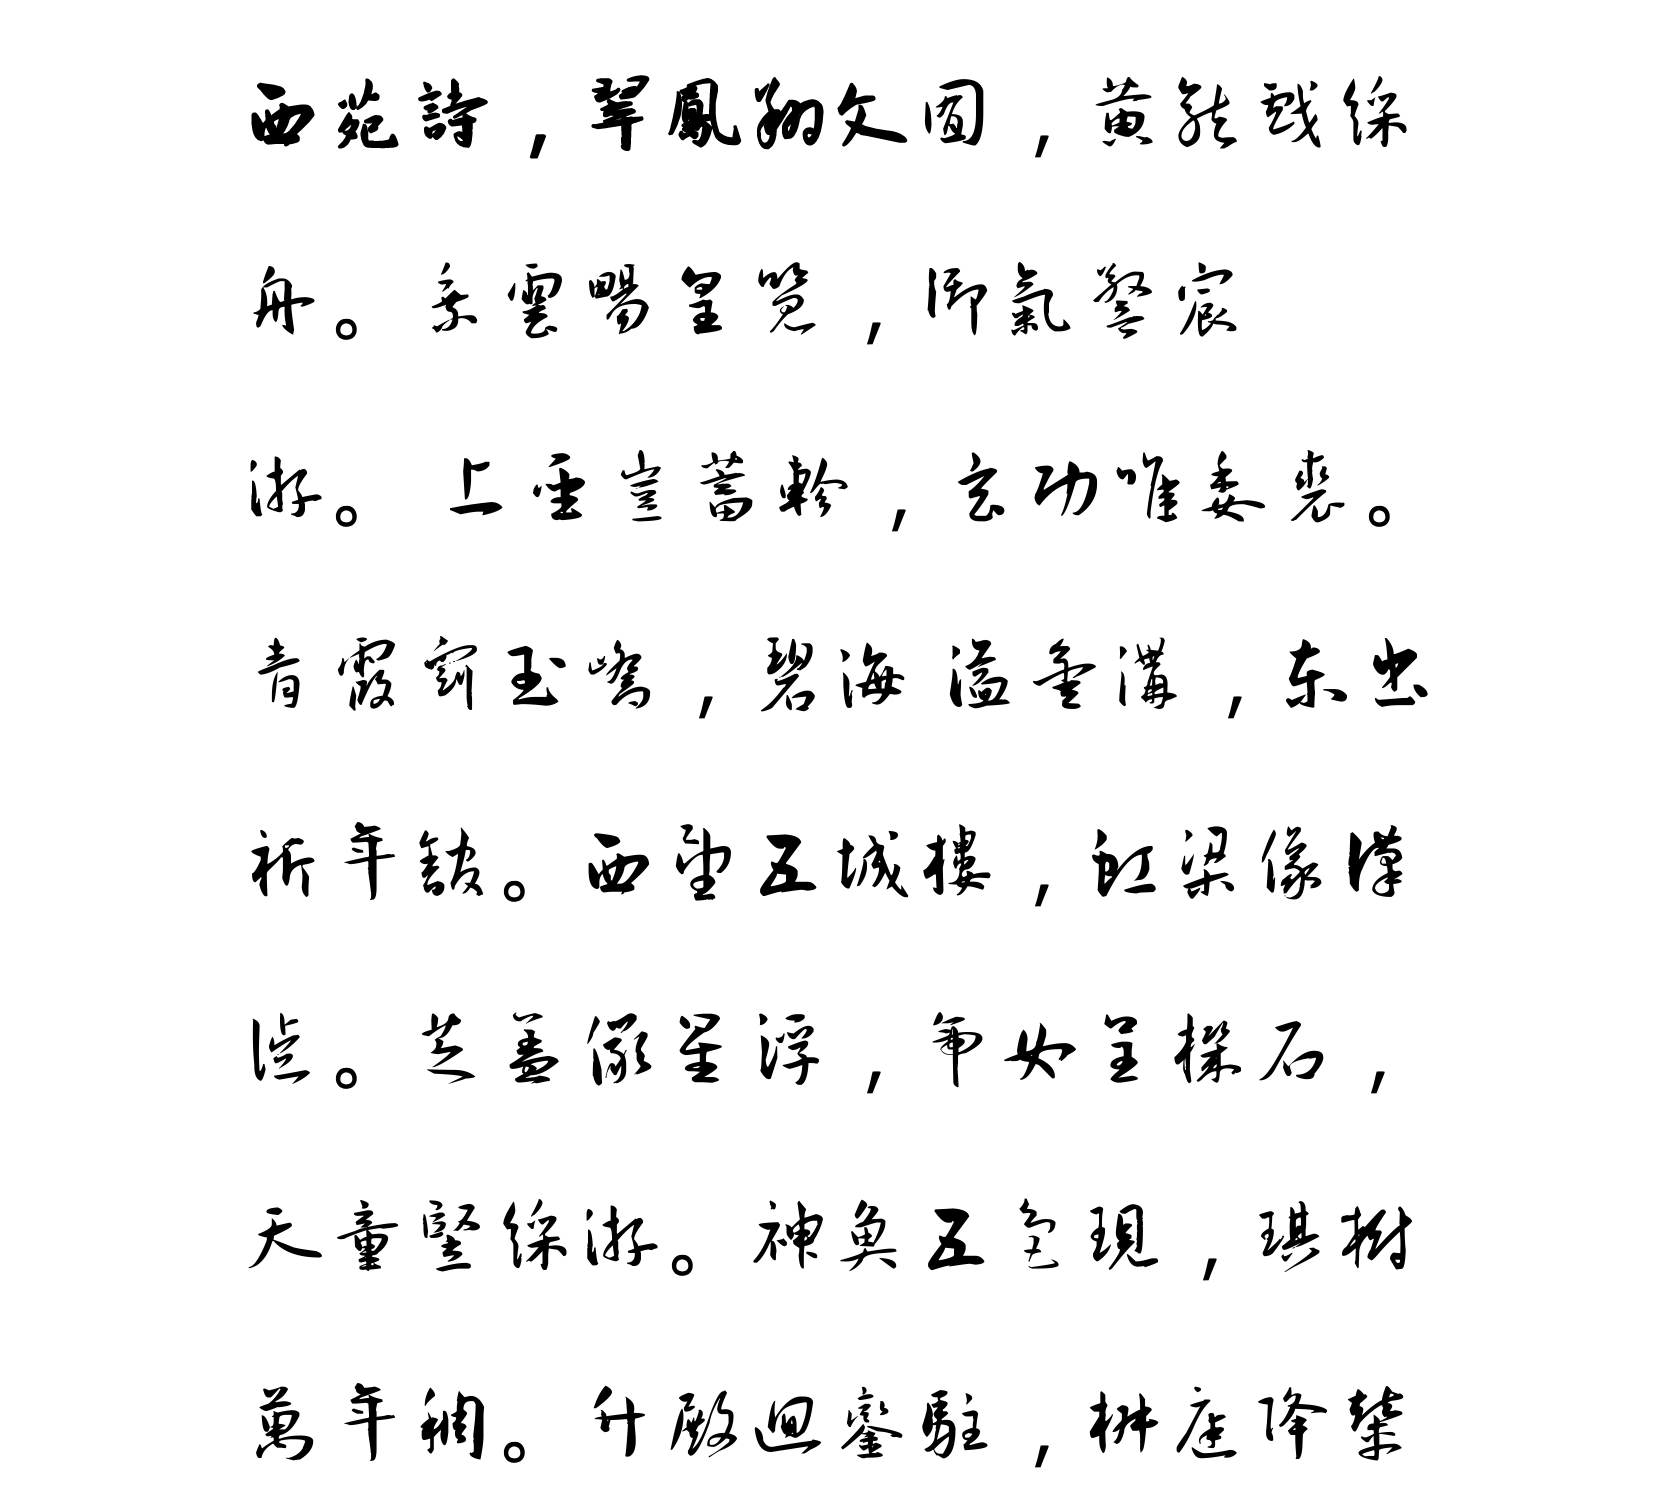 西苑詩，翠鳳翔文囿，黄龍戲綵
舟。乘雲暢皇覽，御氣警宸
游。 上聖豈蓄軫，玄功唯委裘。
青霞窮玉嶠，碧海 溢金溝，东出
祈年館。西望五城樓，虹梁像漢
。芝蓋儼星浮，帝女呈機石，
天童竪綵游。神魚五色現，琪樹
萬年稠。升殿迴鑾駐，椒庭降棨